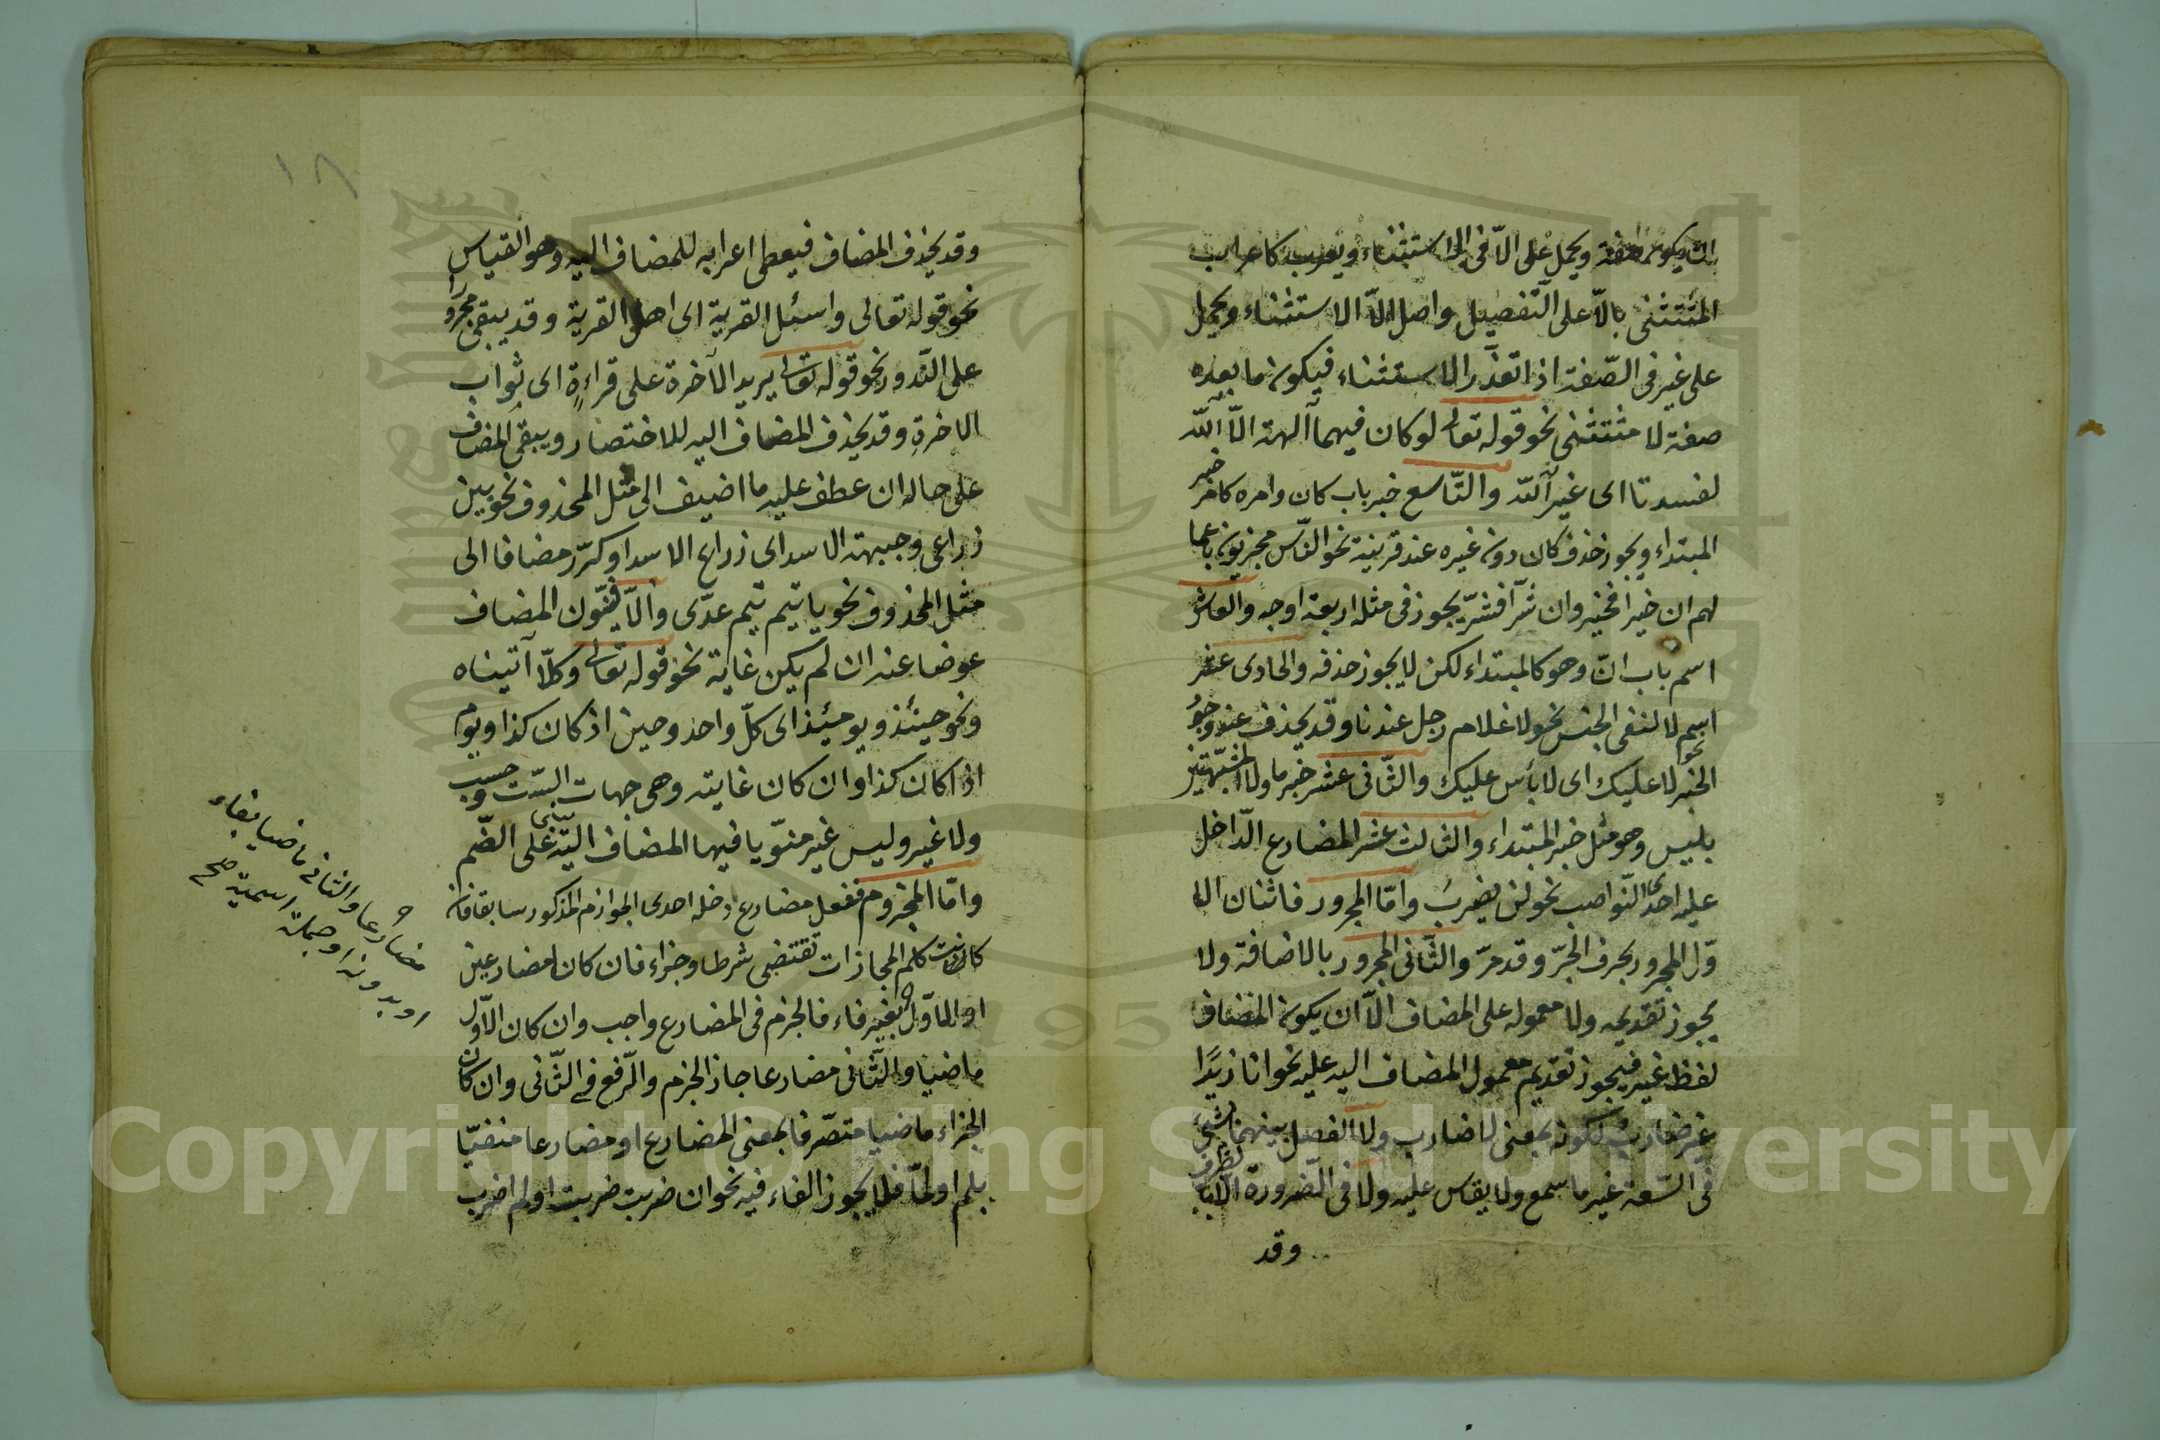 ان يكون صفة ويحمل على الّا فى الاستثناء ويعرب كاعراب
المثتثنى بالّا على التّفصيل واصل الّا الاستثناء ويحمل
على غير فى الصّفة اذا تعذّر الاستثناء فيكون ما بعده
صفة لا مثتثنى نحو قوله تعالى لو كان فيهما آلهة الّا اللّه
لفسدتا اى غير اللّه والتّاسع خبر باب كان وامره كامر خبر
المبتداء ويجوز حذف كان دون غيره عند قرينة نحو النّاس مجزيون باعما
لهم ان خيرا فخير وان شرّا فشرّ يجوز فى مثله اربعة اوجه والعاشر
اسم باب انّ وهو كالمبتداء لكن لا يجوز حذفه والحادى عشر
اسم لا لنفى الجنس نحو لا غلام رجل عندنا وقد يحذف عند وجو
الخبر نحو لا عليك اى لا بأس عليك والثّانى عشر خبر ما ولا المشبّهتين
بليس وهو مثل خبر المبتداء والثالث عشر المضارع الدّاخل
عليه احدى النّواصب نحو لن يضرب وامّا المجرور فاثنان الا
وّل المجرور بحرف الجرّ وقد مرّ والثّانى المجرور بالاضافة ولا
يجوز تقديمه ولا معموله على المضاف الّا ان يكون المضاف
لفظ غير فيجوز تقديم معمول المضاف اليه عليه نحو انا زيدًا
غير ضارب لكونه بمعنى لا ضارب ولا الفصل بينهما بشىء
فى السّعة غير ما سمع ولا يقاس عليه ولا فى الضّرورة الّا بالظرف
وقد
١٨
وقد يحذف المضاف فيعطى اعرابه للمضاف اليه وهو القياس
نحو قوله تعالى واسئل القرية اى اهل القرية وقد يبقى مجرورا
على النّدور نحو قوله تعالى يريد الآخرة على قراءة اى ثواب
الاخرة وقد يحذف المضاف اليه للاختصار ويبقى المضاف
على حاله ان عطف عليه ما اضيف الى مثل المحذوف نحو بين
زراعى وجبهة الاسد اى زراع الاسد او كرّر مضافا الى
مثل المحذوف نحو يا تيم تيم عدّى والّا فينّون المضاف
عوضا عنه ان لم يكن غاية نحو قوله تعالى وكلّا آتيناه
ونحو حينئذ ويومئذ اى كلّ واحد وحين اذ كان كذا ويوم
اذا كان كذا وان كان غاية وهى جهات السّت وحسب
ولا غير وليس غير منوّيا فيها المضاف اليه بنى على الضّم
وامّا المجزوم ففعل مضارع دخله احدى الجوازم المذكور سابقا فان
كانت كلم المجازات تقتضى شرطا وجزاء فان كان مضارعين
او الاوّل بغير فاء فالجزم فى المضارع واجب وان كان الاوّل
ماضيا والثّانى مضارعا جاز الجزم والرّفع فى الثّانى وان كان
الجزاء ماضيا متصّرفا بمعنى المضارع او مضارعا منفيّا
بلم او لمّا فلا يجوز الفاء فيه نحو ان ضربت ضربت او لم اضرب
مضارعا والثانى ماضيا بفاء
او بدونه او جملة اسمية صح
Copyright © King Saud University
1957